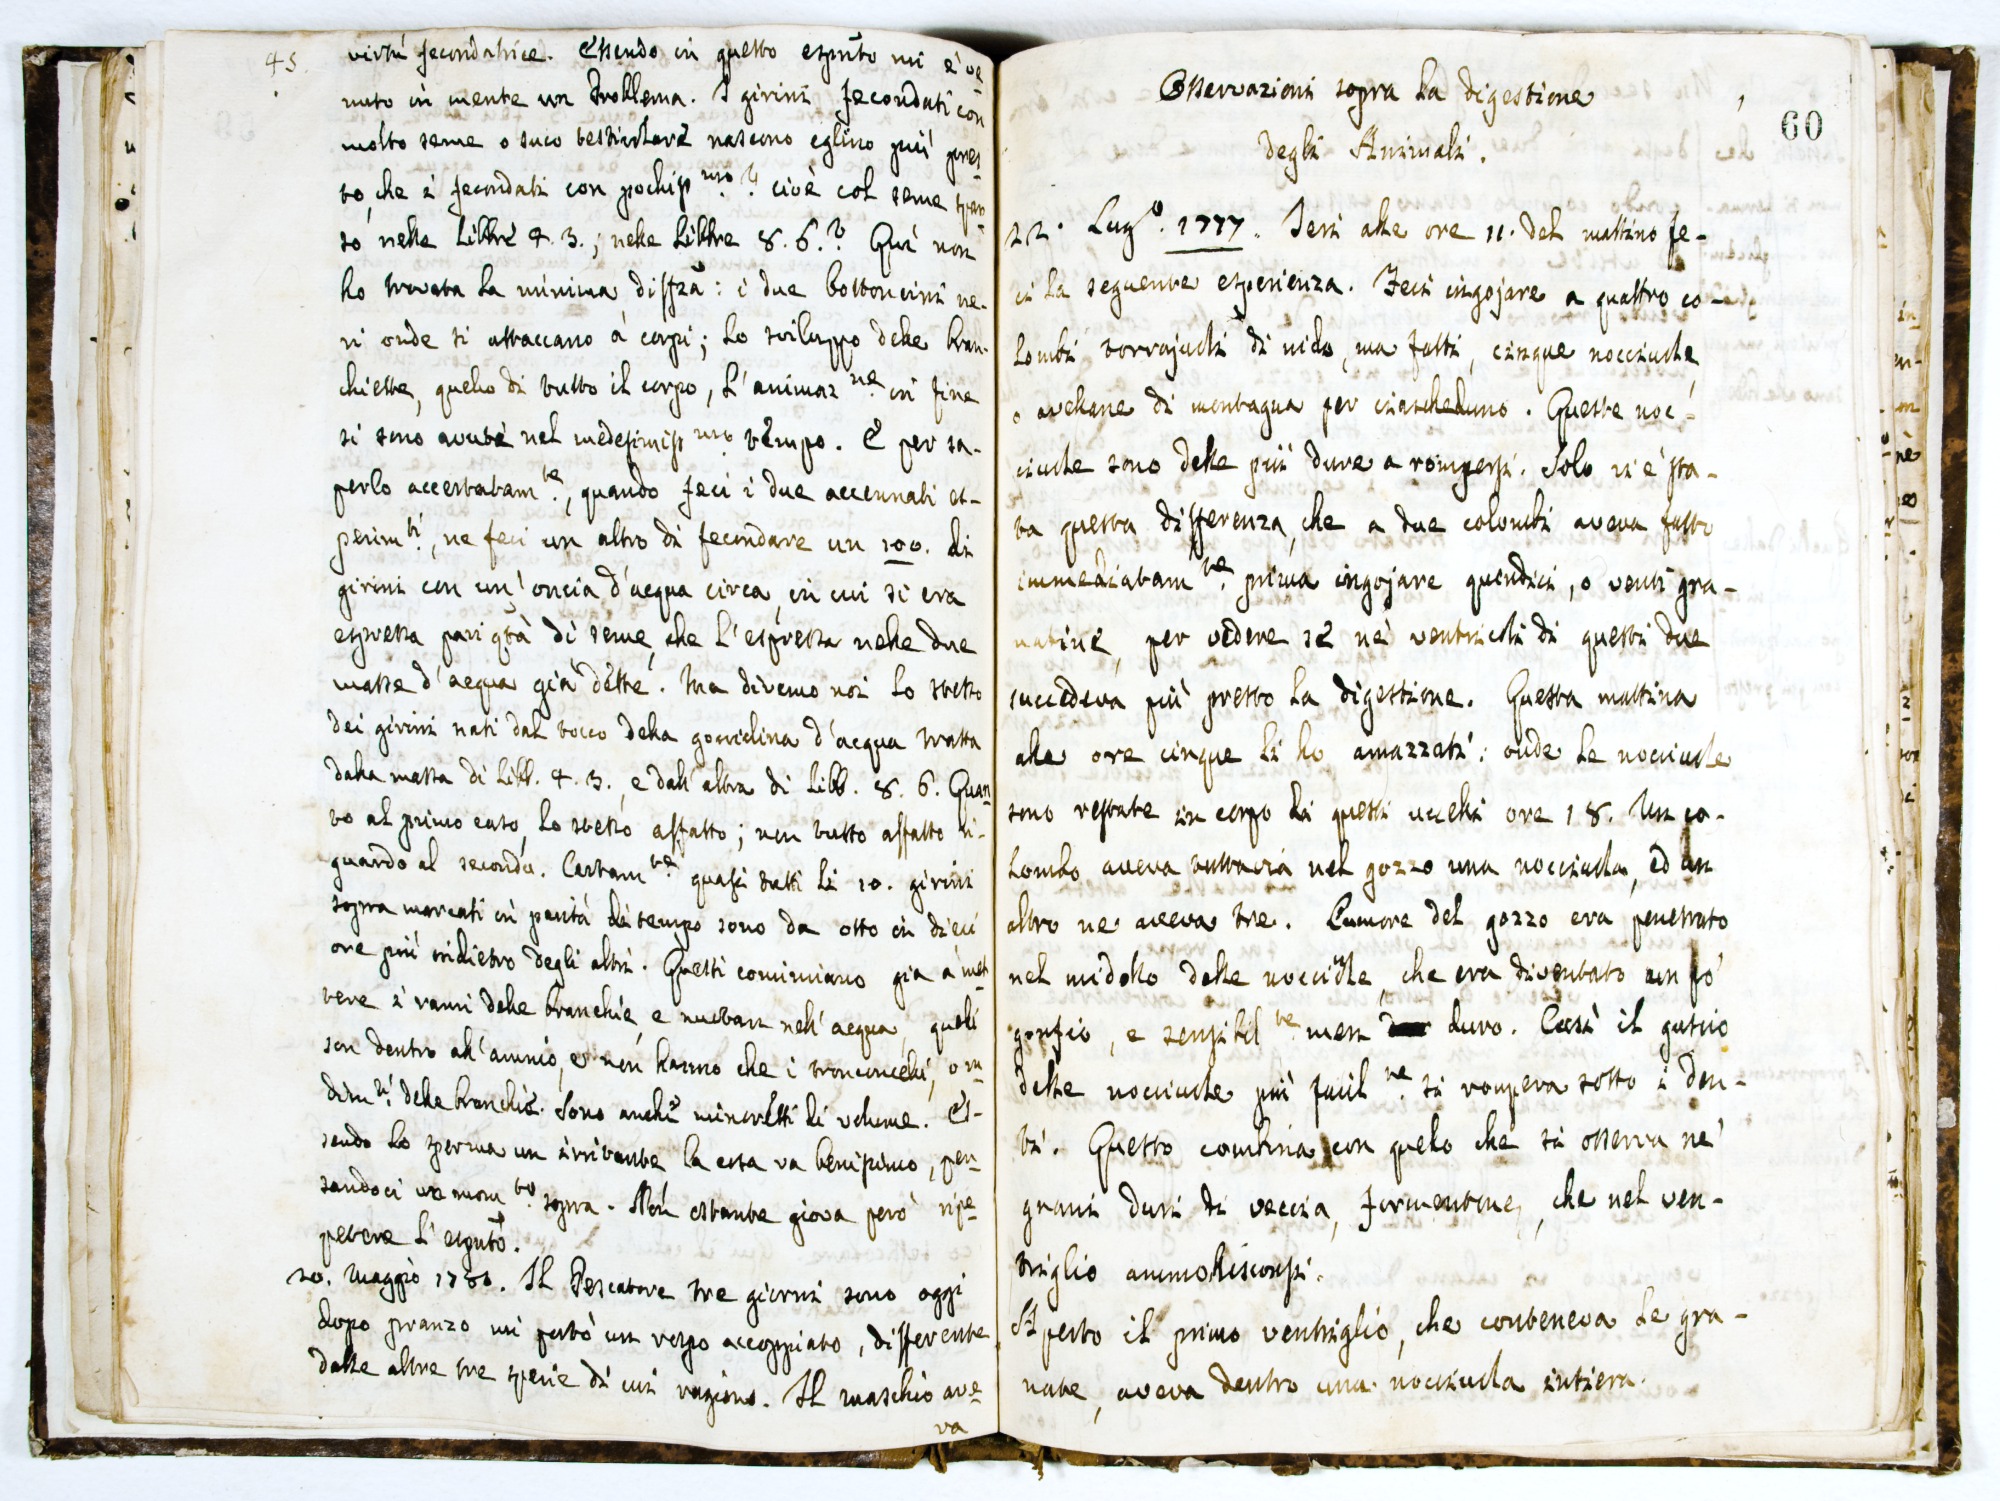 45.
virtù fecondatrice. Essendo in questo espruto mi è ve
nuto in mente un Problema. I girini fecondati con
molto seme o suco testicolare nascono eglino più pres
to, che i fecondati con pochiss.mo ? cioè col seme spar
so nelle Libbre 4. 3.; nelle Libbre 8. 6.? Quì non
ho trovata la minima diffza: i due bottoncini ne-
ri onde si attaccano a' corpi; lo sviluppo delle bran-
chiette, quello di tutto il corpo, l'animaz.ne in fine
si sono avute nel medesimiss.mo tempo. E per sa-
perlo accertatam.te, quando feci i due accennati es-
perim.ti, ne feci un altro di fecondare un 100. di
girini con un'oncia d'acqua circa, in cui si era
espressa pari qtà di seme, che l'espressa nelle due
masse d'acqua già dette. Ma diremo noi lo stesso
dei girini nati dal tocco della gocciolina d'acqua tratta
dalla massa di Libb. 4. 3., e dall'altra di Libb. 8. 6. Quan
to al primo caso, lo stesso affatto; non tutto affatto ri-
guardo al secondo. Certam.te quasi tutti li 10. girini
sopra marcati in parità di tempo sono da otto in dieci
ore più indietro degli altri. Questi cominciano già a met
tere i rami delle branchie, e nuotan nell'acqua, quelli
son dentro all'amnio, e non hanno che i tronconcelli, o ru
dim.ti delle branchie. Sono anche minoretti di volume. Es-
sendo lo sperma un irritante la cosa va benissimo, pen
sandoci un mom.to sopra. Non ostante giova però ripe
petere l'espruto.
20. Maggio 1780. Il Pescatore tre giorni sono oggi
dopo pranzo mi portò un rospo accoppiato, differente
dalle altre tre spezie di cui ragiono. Il maschio ave
va
Osservazioni sopra la digestione
60
degli Animali.
22. Lug.o 1777. Ieri alle ore 11. del mattino fe-
ci la seguente esperienza. Feci ingojare a quattro co-
lombi torrajuoli di nido, ma fatti, cinque nocciuole,
o avellane di montagna per ciascheduno. Queste noc-
ciuole sono delle più dure a rompersi. Solo vi è sta-
ta questa differenza, che a due colombi aveva fatto
immediatam.te prima ingojare quindici, o venti gra-
natine, per vedere se nei ventricoli di questi due
succedeva più presto la digestione. Questa mattina
alle ore cinque li ho amazzati: onde le nocciuole
sono restate in corpo di questi uccelli ore 18. Un co-
lombo aveva tuttavia nel gozzo una nocciuola, ed un
altro ne aveva tre. L'umore del gozzo era penetrato
nel midollo delle nocciole, che era diventato un po'
gonfio, e sensibil.te men duro. Così il guscio
delle nocciuole più facil.te si rompeva sotto i den-
ti. Questo combina con quello che si osserva ne'
grani duri di veccia, formentone, che nel ven-
triglio ammollisconsi.
Aperto il primo ventriglio, che conteneva le gra-
nate, aveva dentro una nocciuola intiera.